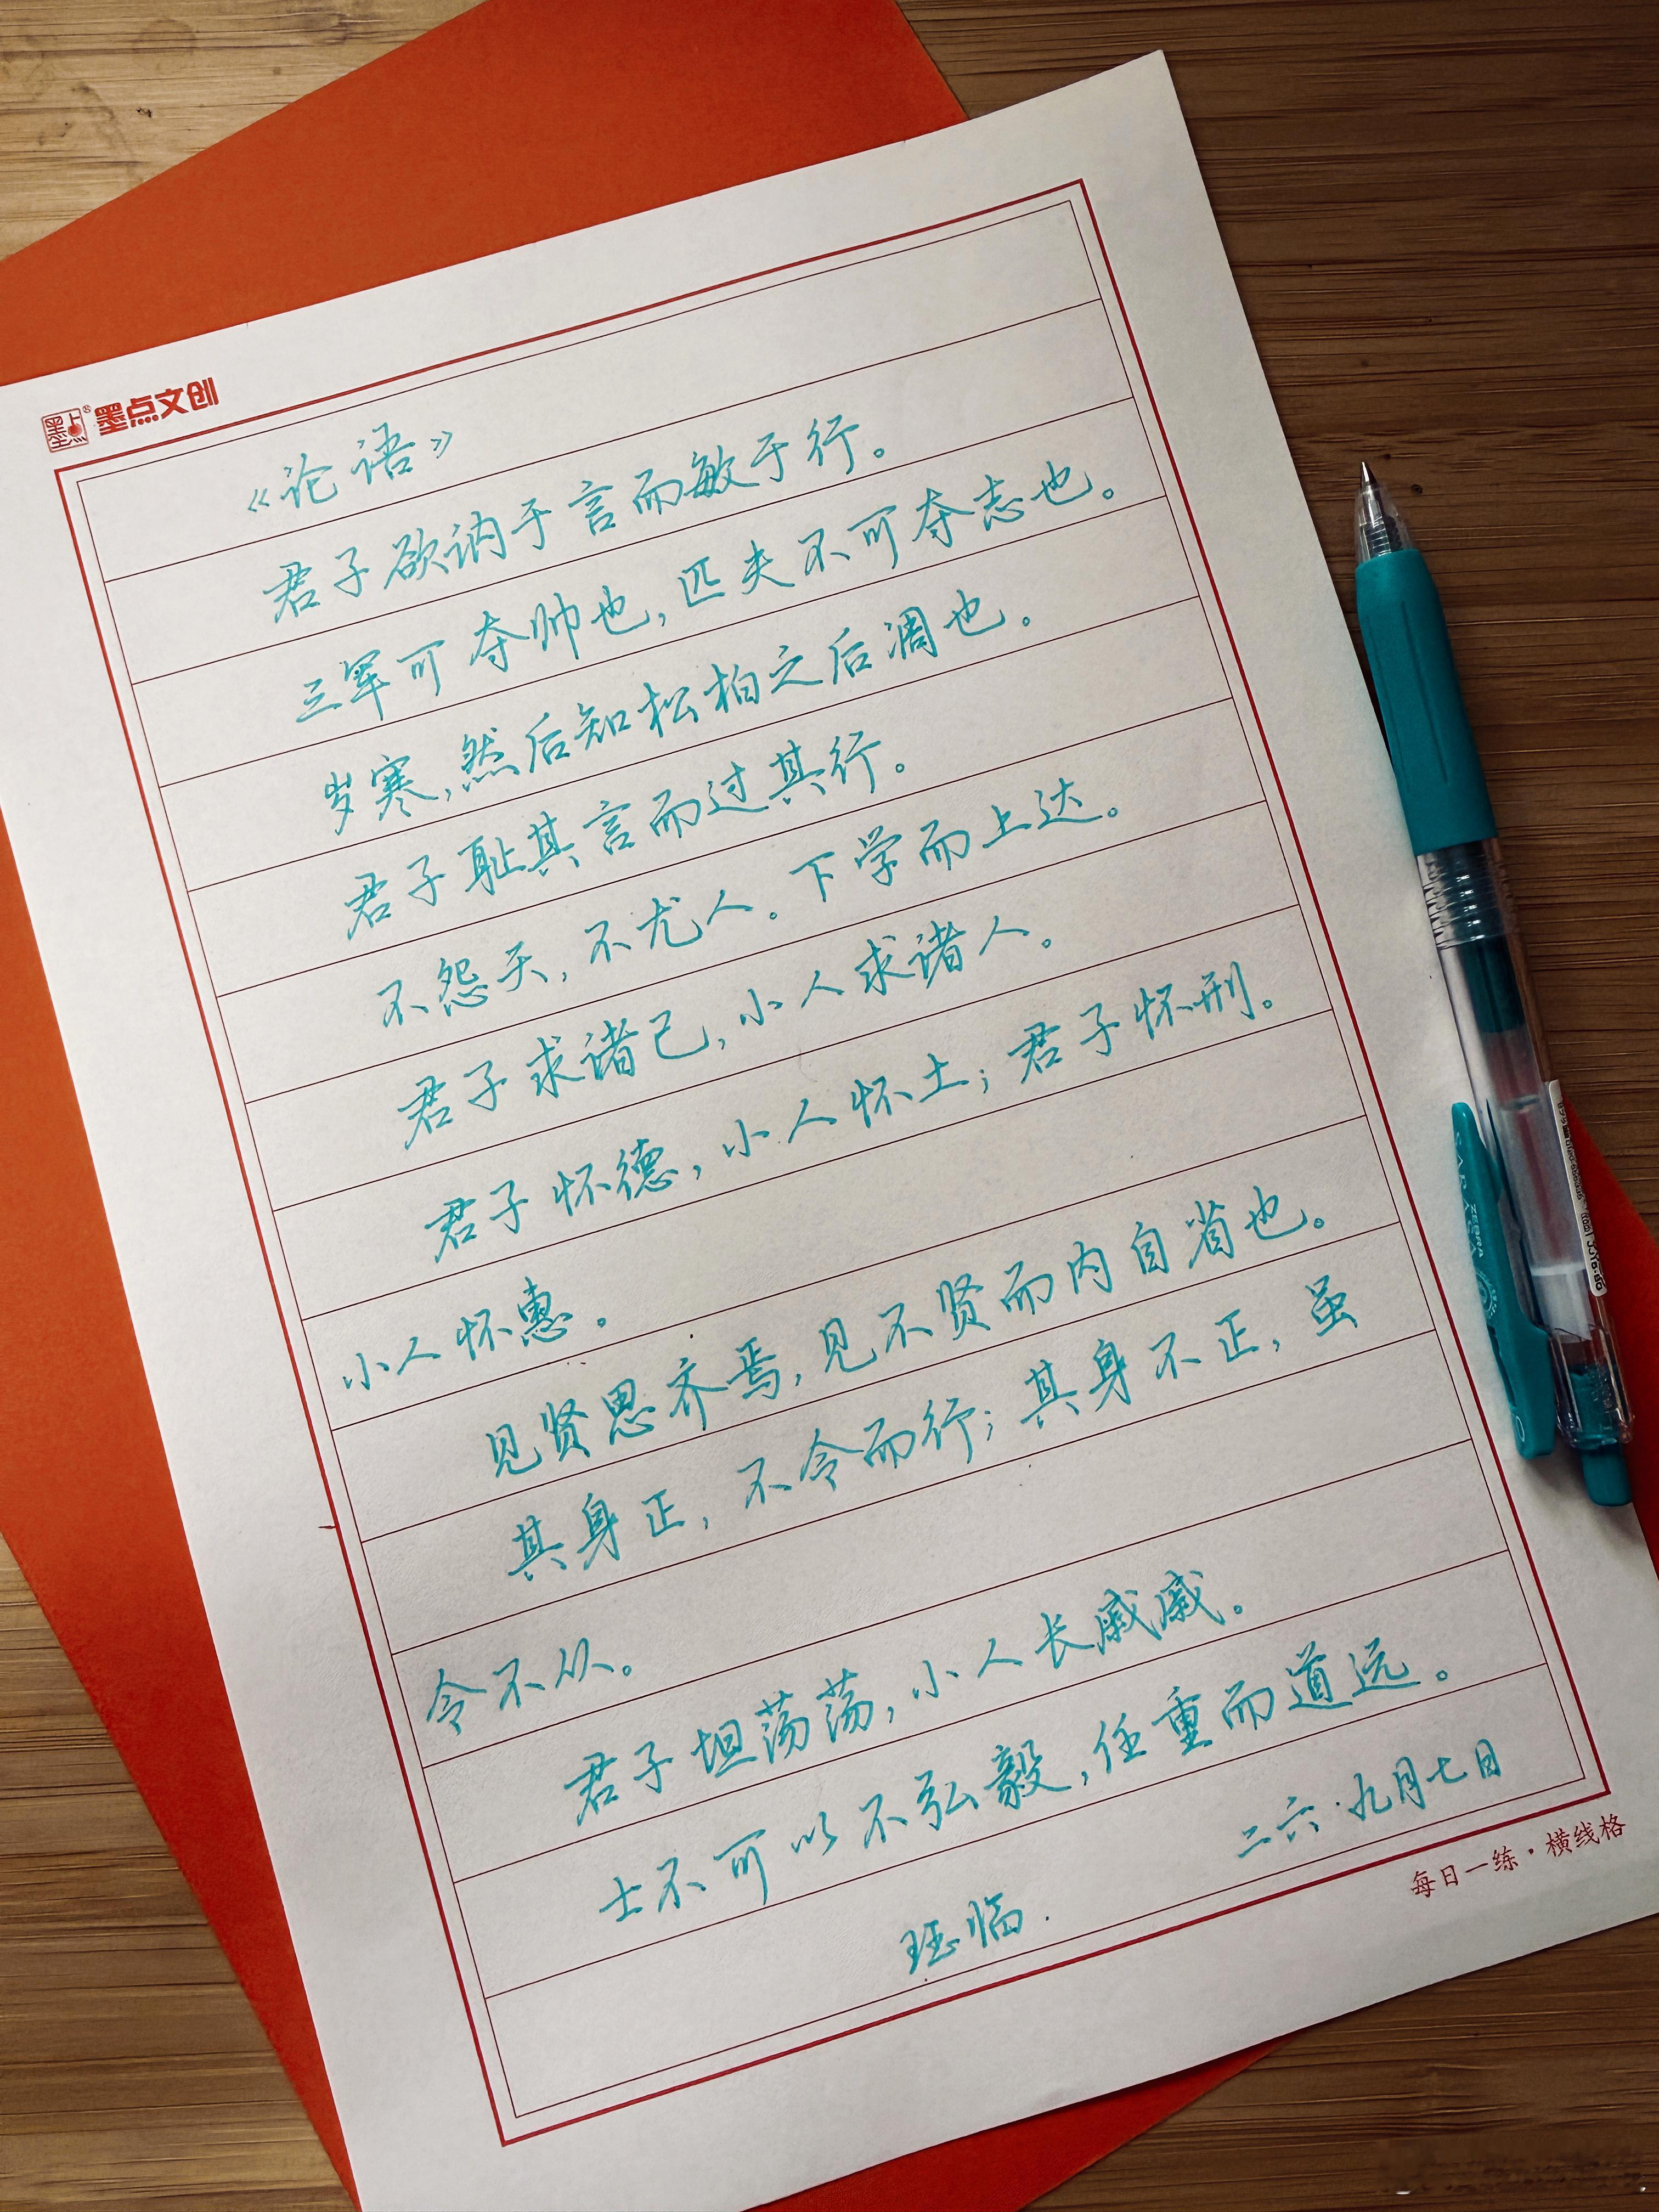 墨点® 墨点文创
《论语》
君子欲讷于言而敏于行。
三军可夺帅也,匹夫不可夺志也。
岁寒,然后知松柏之后凋也。
君子耻其言而过其行。
不怨天,不尤人。下学而上达。
君子求诸己,小人求诸人。
君子怀德,小人怀土;君子怀刑。
小人怀惠。
见贤思齐焉,见不贤而内自省也。
其身正,不令而行;其身不正,虽
令不从。
君子坦荡荡,小人长戚戚。
士不可以不弘毅,任重而道远。
二六·九月七日
珏临.
每日一练·横线格
SARASA
ZEBRA